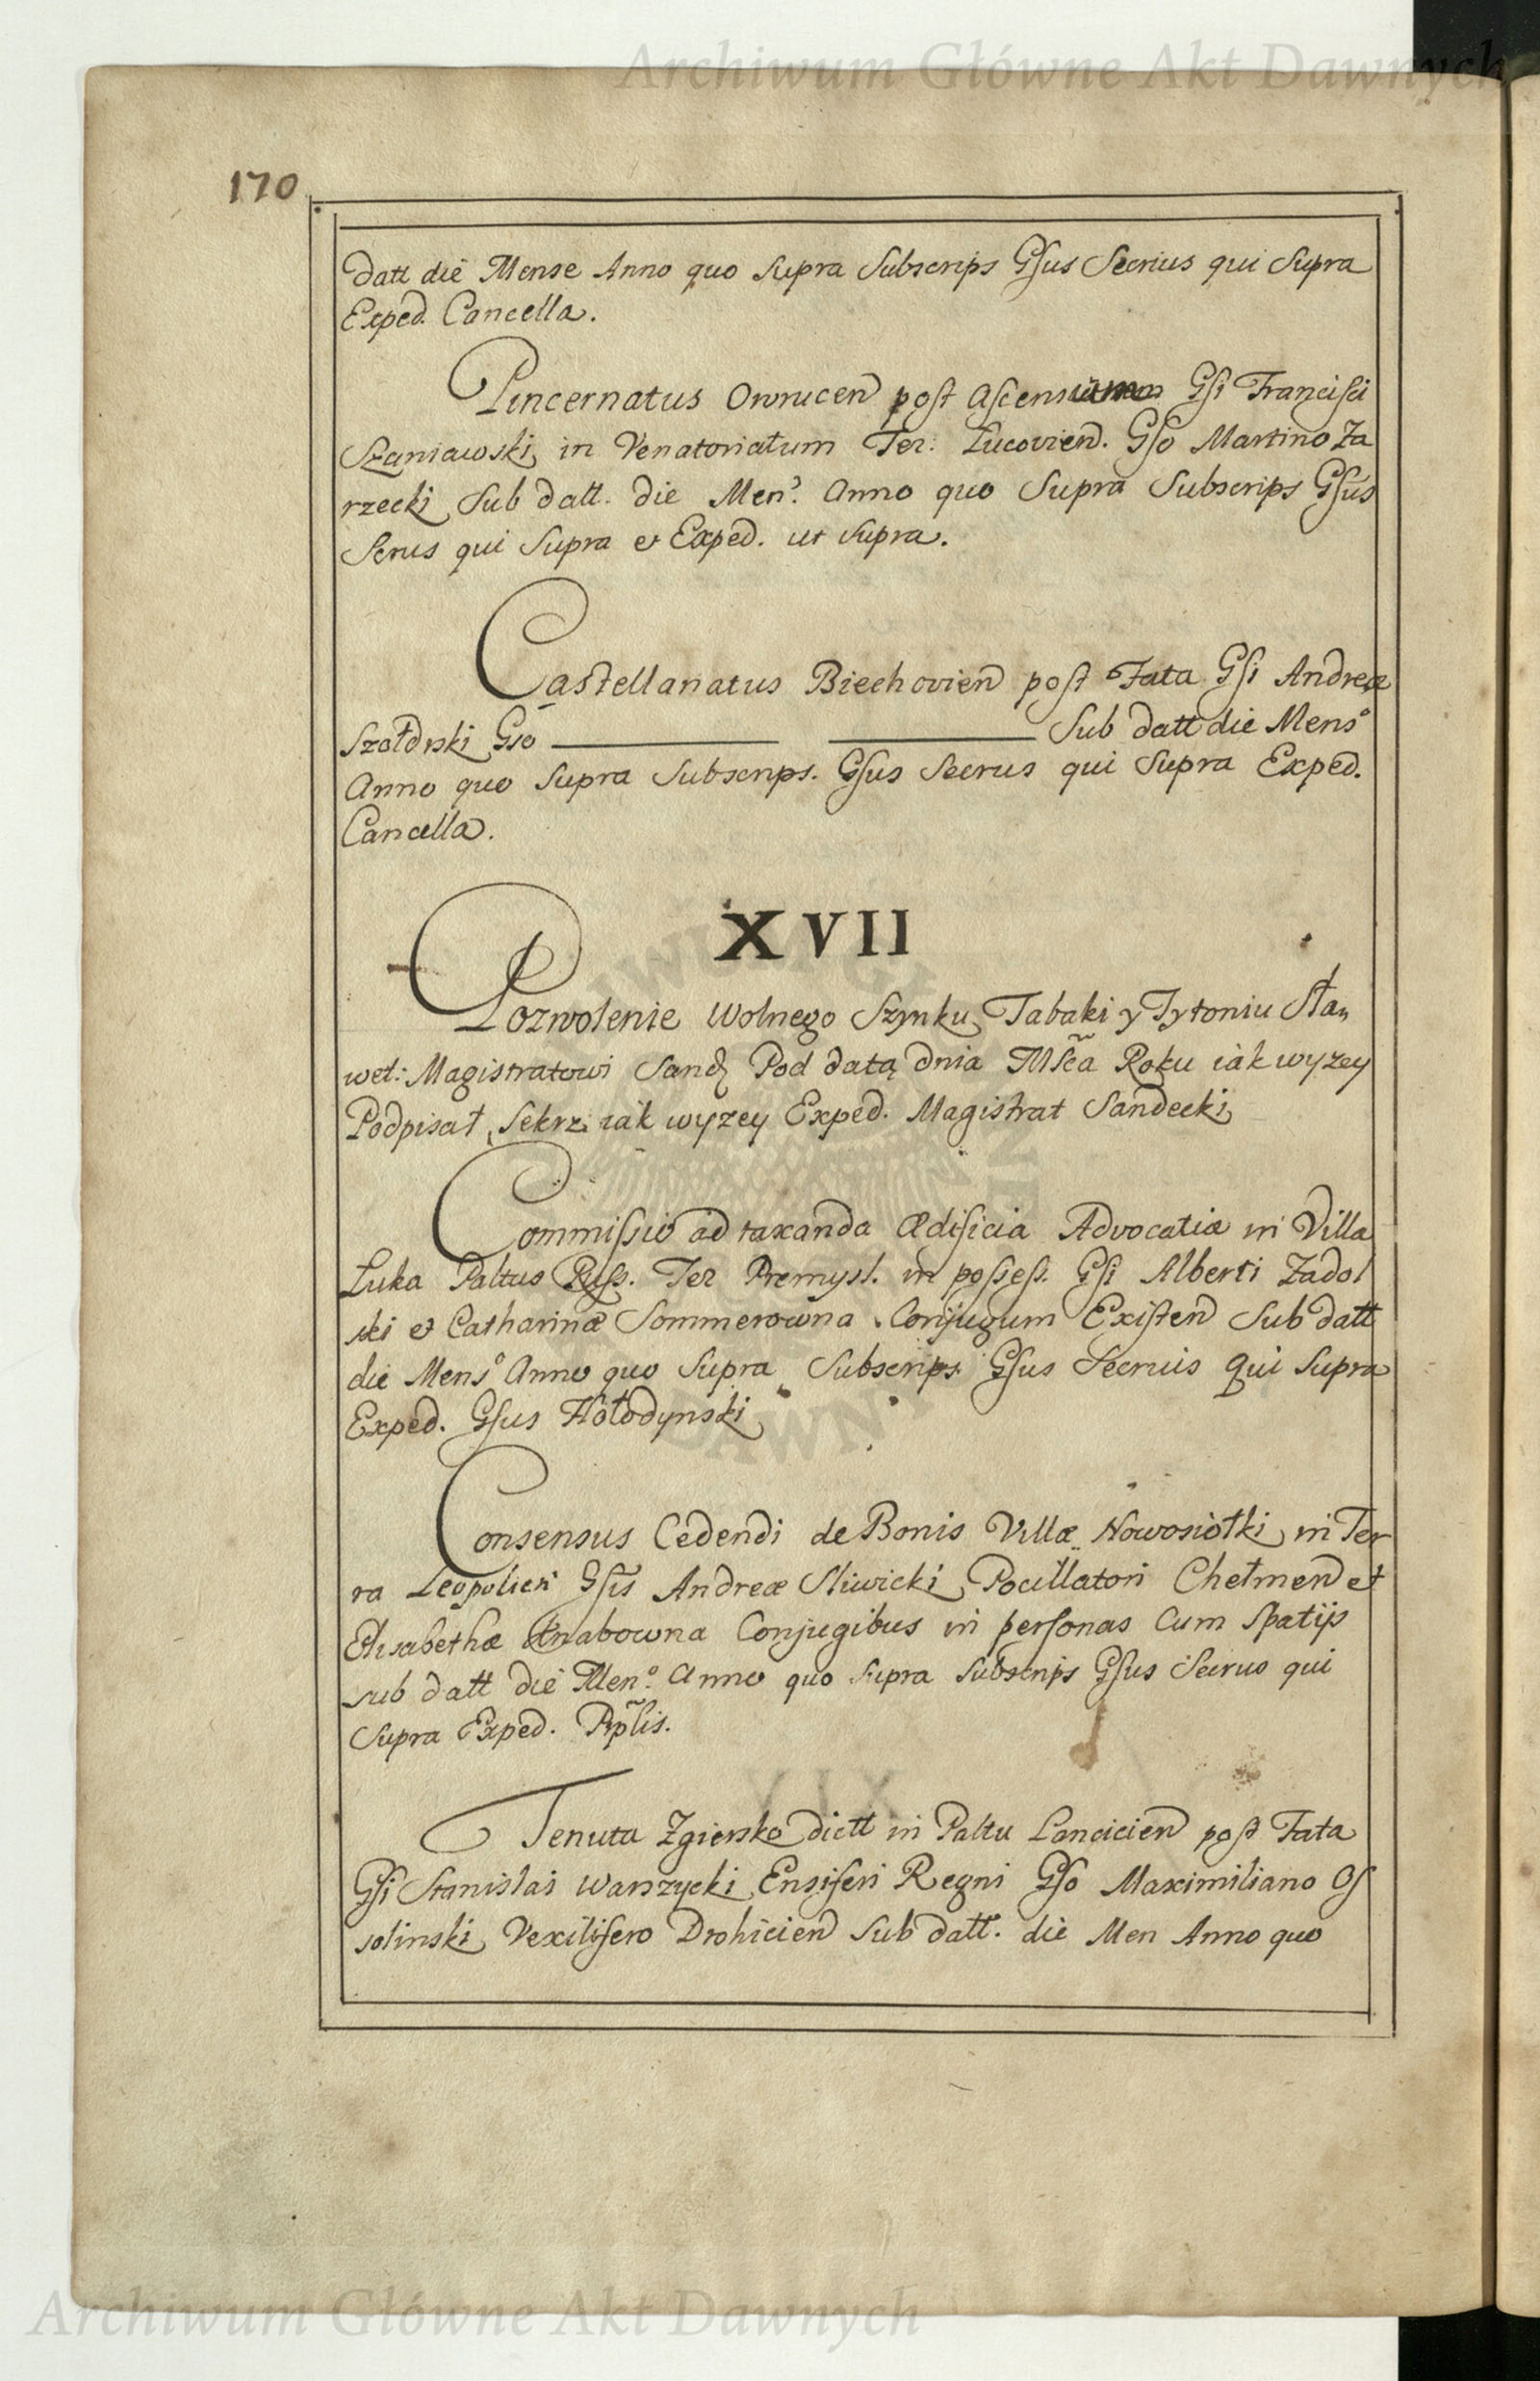 Archiwum Główne Akt Dawnych
170
datt die Mense Anno quo supra Subscrips Gsus Secrius qui Supra
Exped. Cancella.
Pincernatus Owrucen post Ascensum Gsi Francisci
Szaniawski in Venatoriatum Ter: Lucovien. Gso Martino Za
rzecki Sub datt. die Men. Anno quo Supra Subscrips Gsus
Serus qui Supra et Exped. ut supra.
Castellanatus Biechovien post Fata Gsi Andreæ
Szołdrski Gso Sub datt die Mens
Anno quo Supra Subscrips. Gsus Secrus qui Supra Exped.
Cancella.
XVII
Pozwolenie Wolnego Szynku Tabaki y Tytoniu Sła,
wet: Magistratowi Sand Pod datą dnia Msca Roku iak wyzey
Podpisał Sekrz: iak wyzey Exped. Magistrat Sandecki
Commissio ad taxanda Ædificia Advocatiæ in Villa
Łuka Paltus Russ. Ter Premysl. in possess. Gsi Alberti Zadol
ski et Catharinæ Sommerowna Conjugum Existen Sub datt
die Mens Anno quo Supra Subscrips Gsus Secrius qui Supra
Exped. Gsus Hołodynski
Consensus Cedendi de Bonis Villæ Nowosiołki in Ter
ra Leopolien Gsis Andreæ Sliwicki Pocillatori Chełmen et
Elisabethæ Conjugibus in personas Cum Spatijs
sub datt die Men. Anno quo supra subscrips Gsus Secrus qui
Supra Exped. Rplis.
Tenuta Zgiersko dictt in Paltu Lancicien post Fata
Gsi Stanislai Warszycki Ensiferi Regni Gso Maximiliano Os
solinski Vexilifero Drohicien Sub datt. die Men Anno quo
Archiwum Główne Akt Dawnych